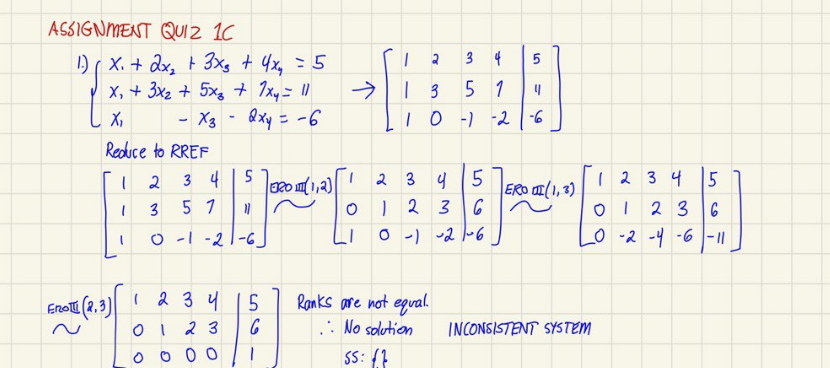 ASSIGNMENT QUIZ 1C
1.) { x₁ + 2x₂ + 3x₃ + 4x₄ = 5
x₁ + 3x₂ + 5x₃ + 7x₄ = 11
x₁ - x₃ - 2x₄ = -6
→ [ 1 2 3 4 | 5
1 3 5 7 | 11
1 0 -1 -2 | -6 ]
Reduce to RREF
[ 1 2 3 4 | 5
1 3 5 7 | 11
1 0 -1 -2 | -6 ]
ERO III (1,2) ~
[ 1 2 3 4 | 5
0 1 2 3 | 6
1 0 -1 -2 | -6 ]
ERO III (1,3) ~
[ 1 2 3 4 | 5
0 1 2 3 | 6
0 -2 -4 -6 | -11 ]
ERO III (2,3) ~
[ 1 2 3 4 | 5
0 1 2 3 | 6
0 0 0 0 | 1
Ranks are not equal.
∴ No solution INCONSISTENT SYSTEM
SS: { }